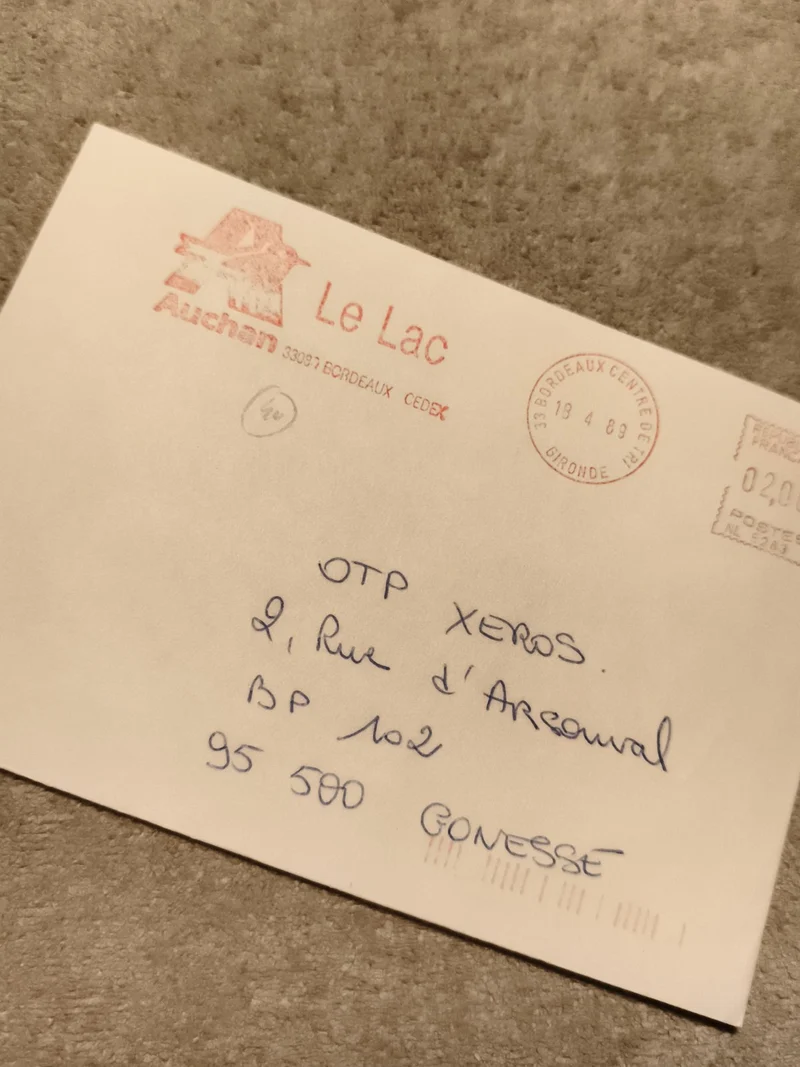 Auchan
Le Lac
33087 BORDEAUX CEDEX
33 BORDEAUX CENTRE DE TRI
18 4 89
GIRONDE
02,0
POSTES
NL 5263
OTP XEROS.
2, Rue d'Arsonval
BP 102
95 500 GONESSE